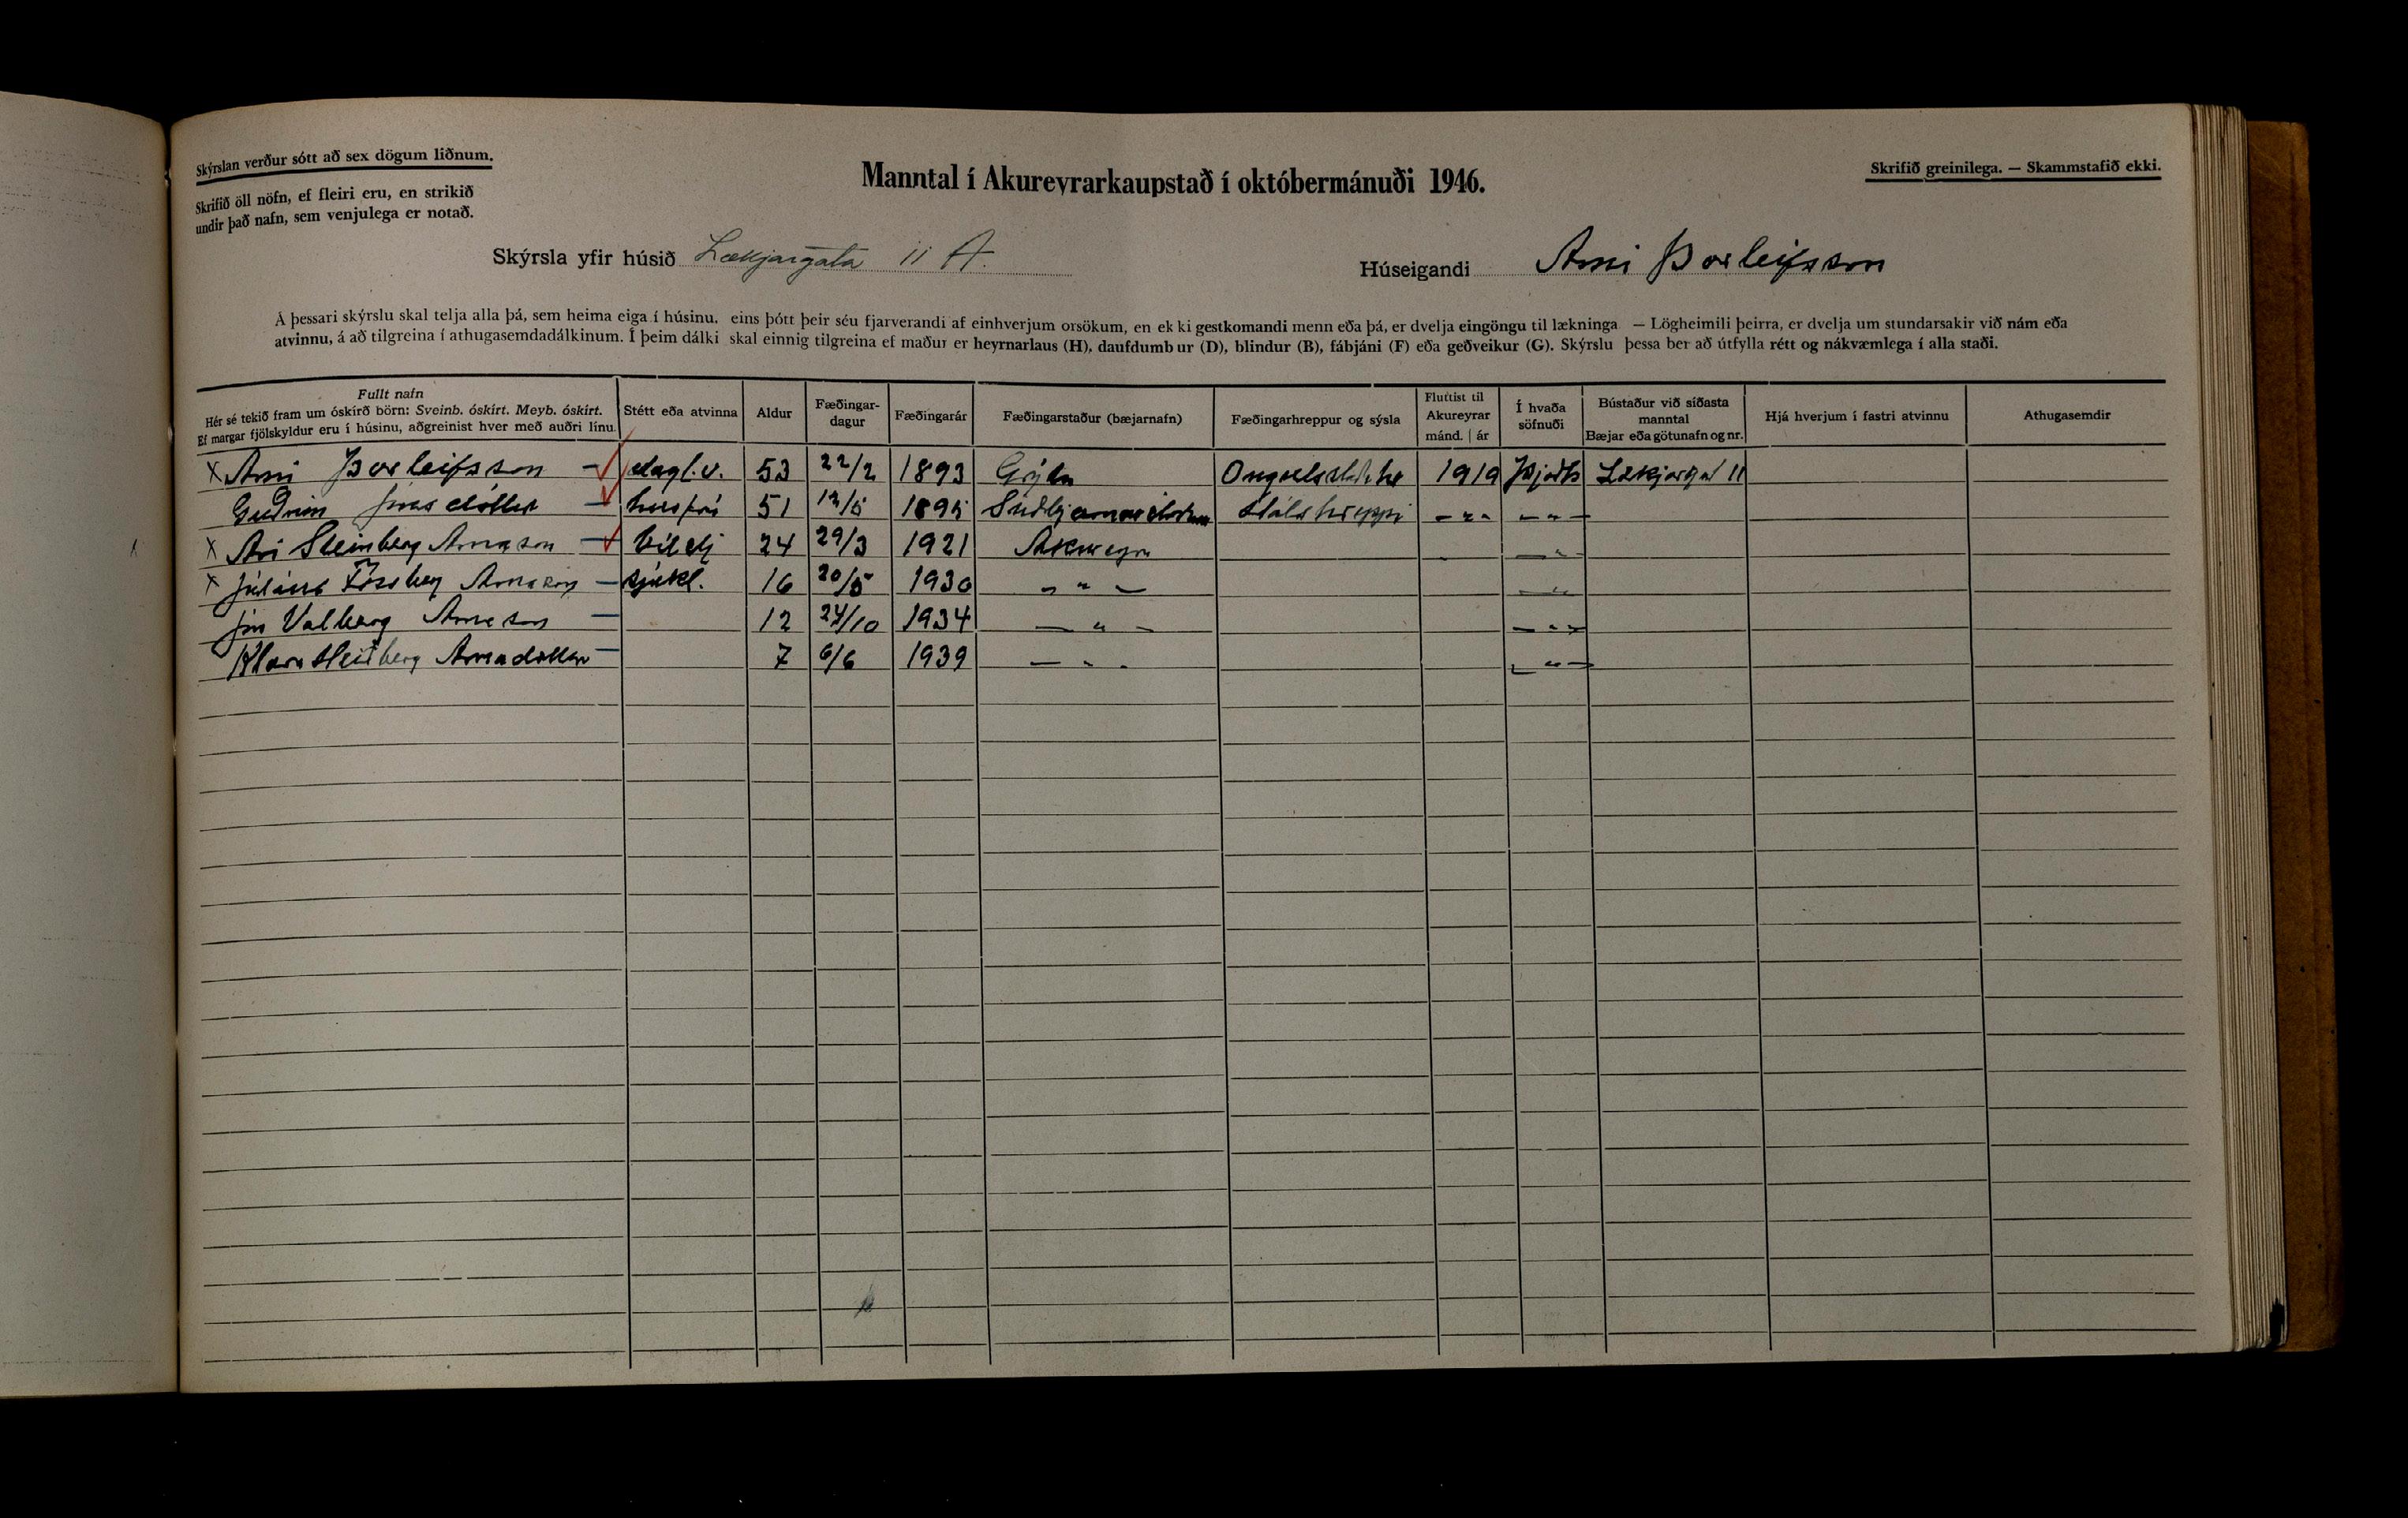 Skýrslan verður sótt að sex dögum liðnum.
Skrifið öll nöfn, ef fleiri eru, en strikið
undir það nafn, sem venjulega er notað.
Manntal í Akureyrarkaupstað í októbermánuði 1946.
Skrifið greinilega. — Skammstafið ekki.
Skýrsla yfir húsið Lækjargata 11 A.
Húseigandi Arni Þorleifsson
Á þessari skýrslu skal telja alla þá, sem heima eiga í húsinu, eins þótt þeir séu fjarverandi af einhverjum orsökum, en ekki gestkomandi menn eða þá, er dvelja eingöngu til lækninga — Lögheimili þeirra, er dvelja um stundarsakir við nám eða
atvinnu, á að tilgreina í athugasemdadálkinum. Í þeim dálki skal einnig tilgreina ef maður er heyrnarlaus (H), daufdumbur (D), blindur (B), fábjáni (F) eða geðveikur (G). Skýrslu þessa ber að útfylla rétt og nákvæmlega í alla staði.
Fullt nafn
Hér sé tekið fram um óskírð börn: Sveinb. óskírt. Meyb. óskírt.
Ef margar fjölskyldur eru í húsinu, aðgreinist hver með auðri línu.
Stétt eða atvinna
Aldur
Fæðingar-
dagur
Fæðingarár
Fæðingarstaður (bæjarnafn)
Fæðingarhreppur og sýsla
Fluttist til
Akureyrar
mánd. | ár
Í hvaða
söfnuði
Bústaður við síðasta
manntal
Bæjar eða götunafn og nr.
Hjá hverjum í fastri atvinnu
Athugasemdir
x Arni Þorleifsson — dagl.v. 53 22/2 1893 Grýta 1919 Lækjargat 11
Guðrún Jónsdóttir — húsfrú 51 12/5 1895 Hálshreppi – „ – – „ –
x Ari Steinberg Arnason — 24 29/3 1921 Akureyri – „
x Júlíus Fossberg Arnason — sjúkl. 16 20/5 1930 – „ – – „
Jón Valberg Arnason — 12 24/10 1934 – „ – – „ –
Klara Heiðberg Arnadóttir — 7 6/6 1939 – „ – – „ –